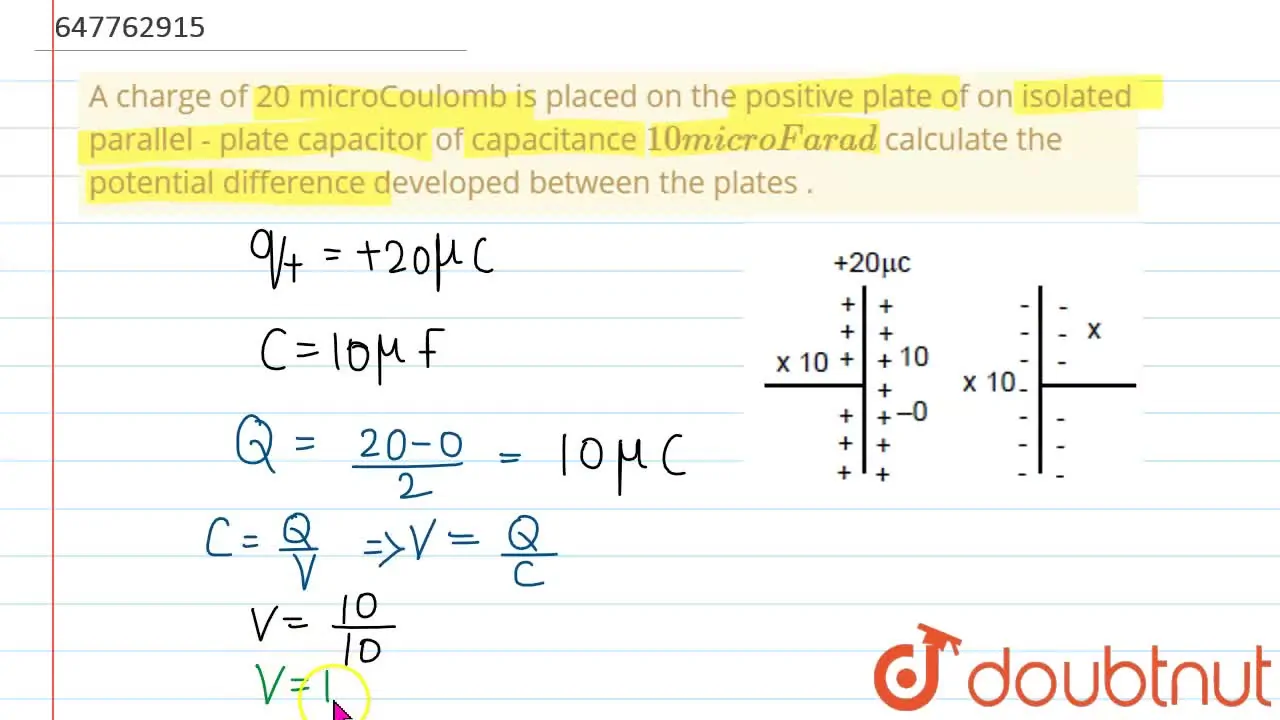 647762915
A charge of 20 microCoulomb is placed on the positive plate of on isolated
parallel - plate capacitor of capacitance 10microFarad calculate the
potential difference developed between the plates .
q+ = +20μC
C = 10μF
Q = 20-0/2 = 10μC
C = Q/V => V = Q/C
V = 10/10
V = 1
+20μc
+ + - -
+ + - - x
x 10 + + 10 - -
+ x 10 -
+ + –0 - -
+ + - -
+ + - -
doubtnut